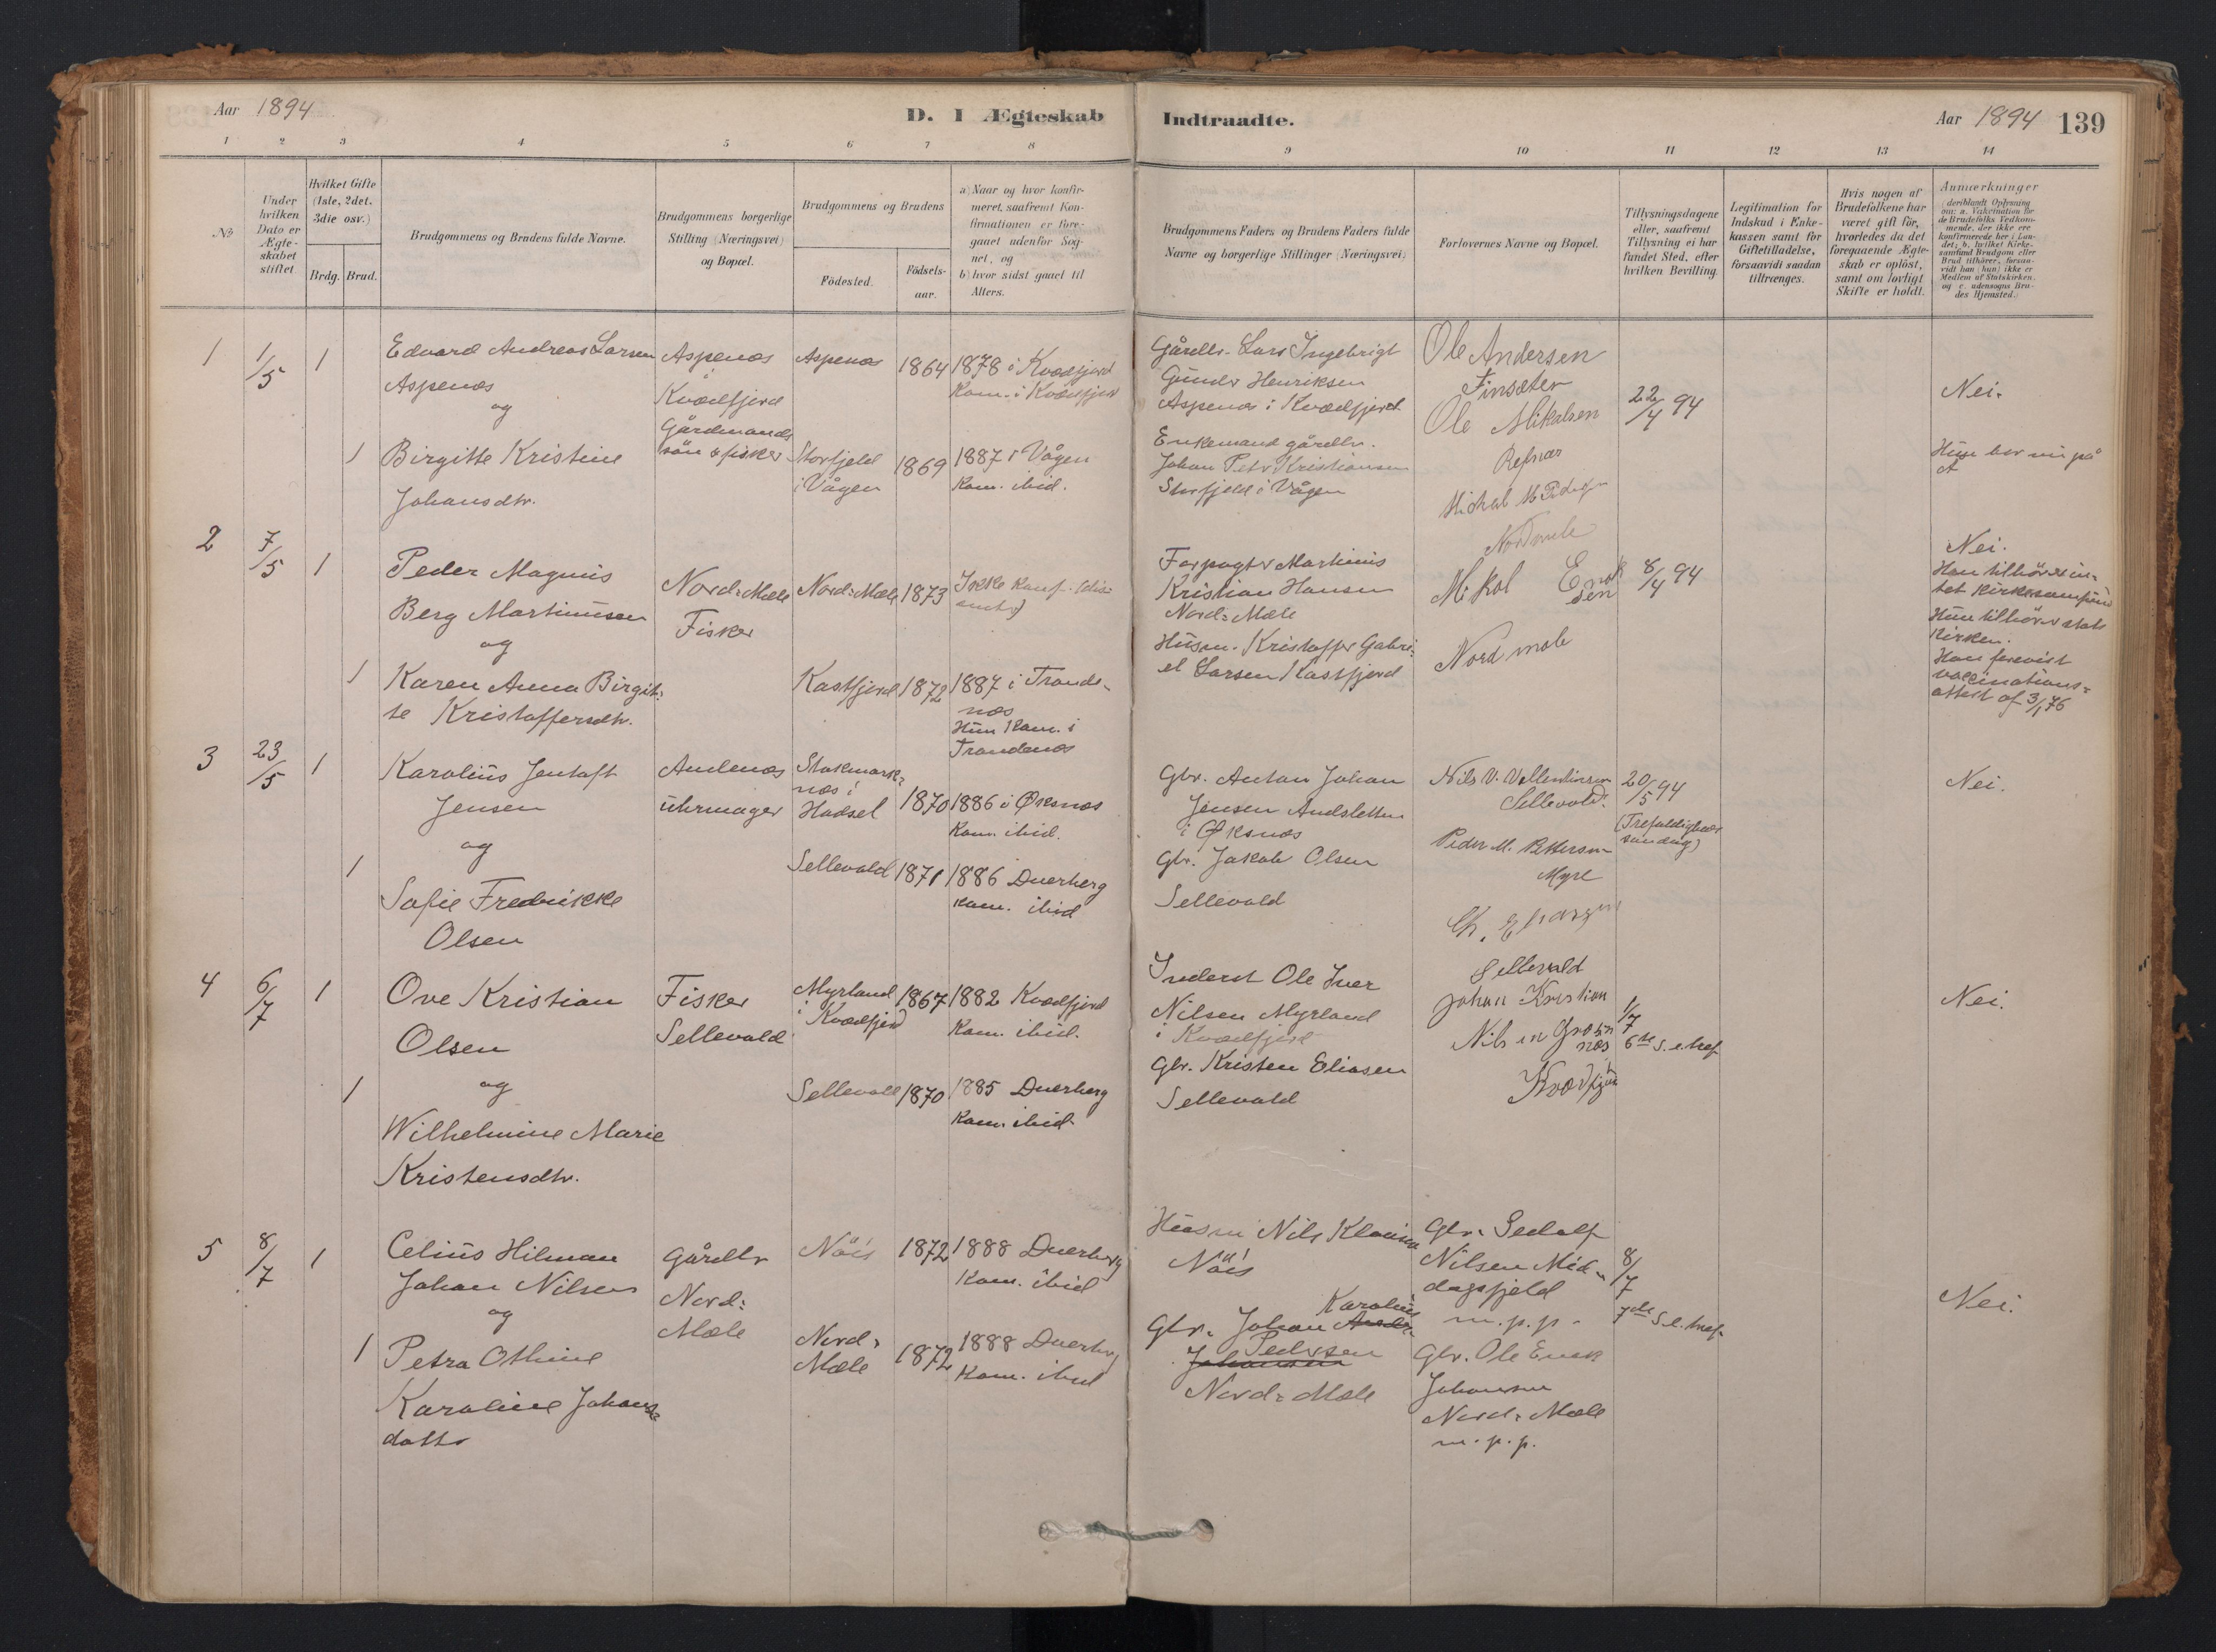 Aar 1894
D. I Ægteskab
Indtraadte.
Aar 1894 139
1 2 3 4 5 6 7 8
9 10 11 12 13 14
No
Under hvilken Dato er Ægte-skabet stiftet
Hvilket Gifte (1ste, 2det, 3die osv.)
Brdg. Brud.
Brudgommens og Brudens fulde Navne.
Brudgommens borgerlige Stilling (Næringsvei) og Bopæl.
Brudgommens og Brudens
Fødested.
Fødsels-aar.
a) Naar og hvor konfir-meret, saafremt Kon-firmationen er fore-gaaet udenfor Sog-net, og
b) hvor sidst gaaet til Alters.
Brudgommens Faders og Brudens Faders fulde Navne og borgerlige Stillinger (Næringsvei)
Forlovernes Navne og Bopæl.
Tillysningsdagene eller, saafremt Tillysning ei har fundet Sted, efter hvilken Bevilling.
Legitimation for Indskud i Enke-kassen samt for Giftetilladelse, forsaavidt saadan tiltrænges.
Hvis nogen af Brudefolkene har været gift før, hvorledes da det foregaaende Ægte-skab er opløst, samt om lovligt Skifte er holdt.
Anmærkninger (deriblandt Oplysning om: a. Vakcination for de Brudefolks Vedkom-mende, der ikke ere konfirmerede her i Lan-det; b. hvilket Kirke-samfund Brudgom eller Brud tilhører, forsaa-vidt han (hun) ikke er Medlem af Statskirken, og c. udensogns Bru-des Hjemsted.)
1 1/5 1
Edvard Andreas Larsen
Aspenæs
og
1 Birgitte Kristine
Johansdtr.
Aspenæs
i
Kvædfjord
Gårdmands
søn & fisker
Aspenæs 1864
1878 i Kvædfjord
Kom. i Kvædfjord
Storfjeld
i Vågen 1869
1887 i Vågen
Kom. ibid.
Gårdbr. Lars Ingebrigt
Gunder Henriksen
Aspenæs i Kvædfjord
Enkemand gårdbr.
Johan Petr. Kristiansen
Storfjeld i Vågen
Ole Andersen
Finsæter
Ole Mikalsen
Refnæs
22/4 94
Nei.
Hun bor nu på
2 7/5 1
Peder Magnus
Berg Martinusen
og
1 Karen Anna Birgit-
te Kristoffersdtr.
Nord-Mæle
Fisker
Nord-Mæle 1873
Ikke konf.
Kastfjord 1872
1887 i Trands-
næs
Hun kom. i
Trandenæs
Forpagtr Martinus
Kristian Hansen
Nord-Mæle
Husm. Kristoffer Gabri-
el Larsen Kastfjord
Nordmele
Mikal Enok
sen
Nord mele
8/4 94
Nei.
Han tilhører in-
tet kirkesamfund
Hun tilhører stats
kirken.
Han forevist
vaccinations-
attest af 3/1 76
3 23/5 1
Karolius Jentoft
Jensen
og
1 Sofie Fredrikke
Olsen
Andenæs
uhrmager
Stokmark-
næs i
Hadsel 1870
1886 i Øksnæs
Kom. ibid.
Sellevold 1871
1886 Dverberg
kom. ibid
Gbr. Anton Johan
Jensen Andsletten
i Øksnæs
Gbr. Jakob Olsen
Sellevold
Nils V. Vallentinsen
Sellevold.
Peder M. Pettersen
Myre
20/5 94
(Trefoldigheds
søndag)
Nei.
4 6/7 1
Ove Kristian
Olsen
og
1 Wilhelmine Marie
Kristensdtr.
Fisker
Sellevold
Myrland
i Kvædfjord 1867
1882 Kvædfjord
Kom. ibid.
Sellevold 1870
1885 Dverberg
Kom. ibid.
Inderst Ole Iver
Nilsen Myrland
i Kvædfjord
Gbr. Kristen Eliasen
Sellevold
Sellevold
Johan Kristian
Nilsen
Kvædfjord
1/7
6te S. e. tref.
Nei.
5 8/7 1
Celius Hilman
Johan Nilsen
og
1 Petra Othine
Karoline Johans-
datter
Gårdbr
Nord-
Mæle
Nöis 1872
1888 Dverberg
Kom. ibid
Nord-
Mæle 1872
1888 Dverberg
Kom. ibid
Husm Nils Klausen
Nöis
Karolius
Gbr. Johan Andr.
Pedersen
Johansen
Nord-Mæle
Gbr. Sedolf
Nilsen Mid-
dagsfjeld
m.p.p.
Gbr. Ole Enok
Johansen
Nord-Mæle
m.p.p.
8/7
7de S. e. tref.
Nei.